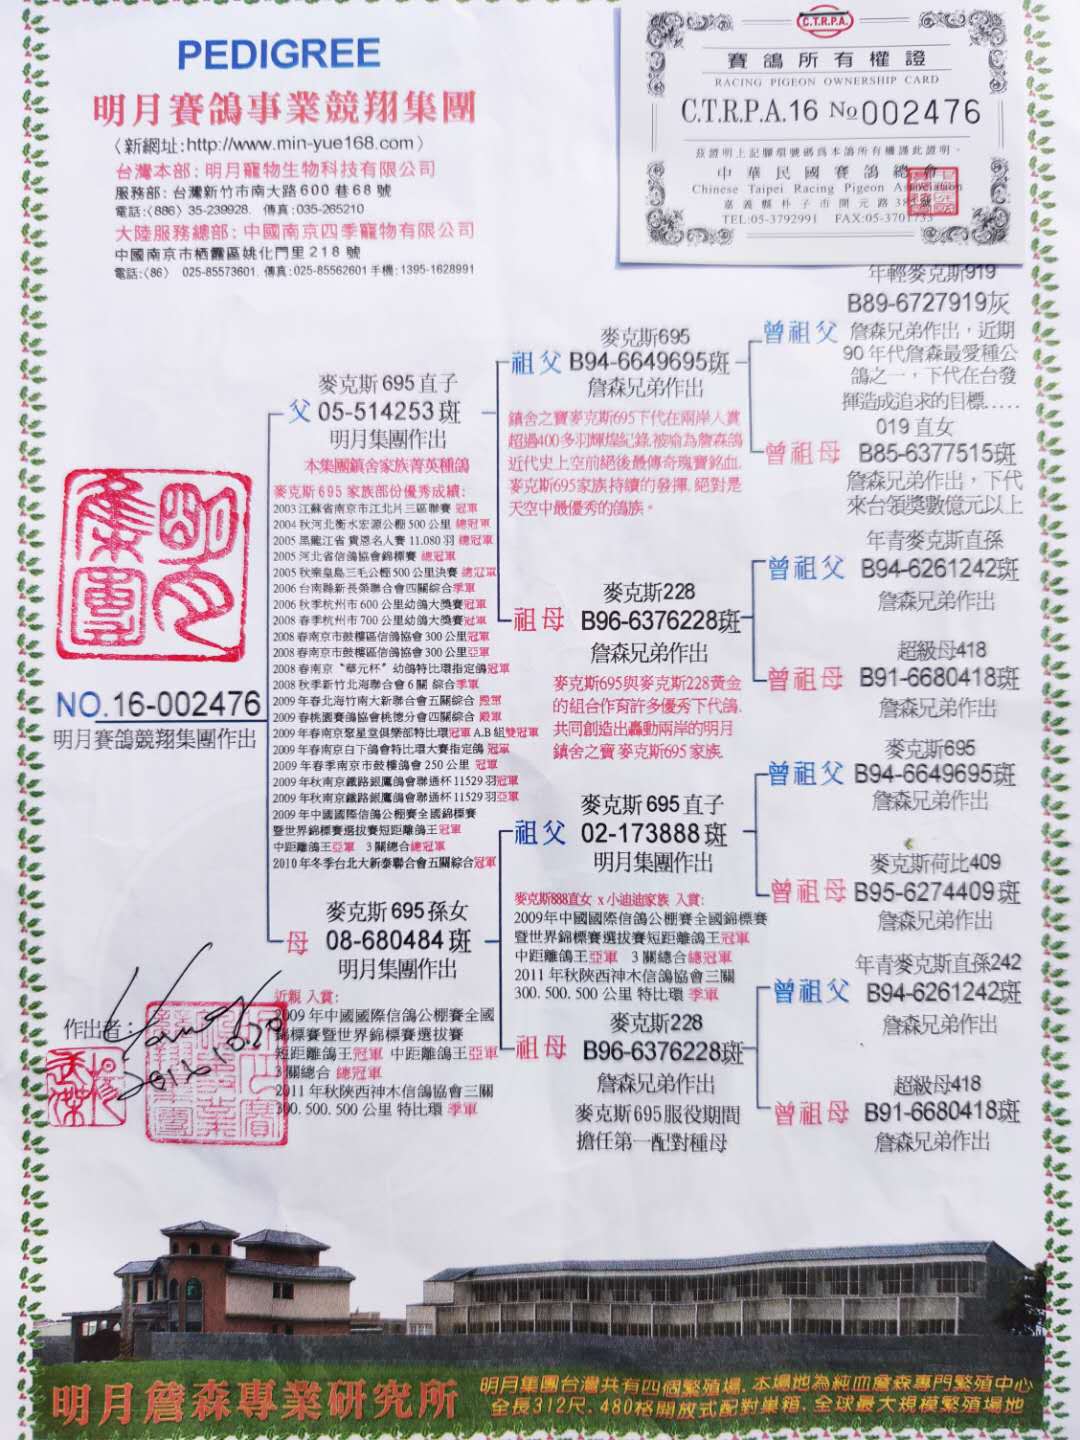 PEDIGREE
明月賽鴿事業競翔集團
〈新網址:http://www.min-yue168.com〉
台灣本部: 明月寵物生物科技有限公司
服務部: 台灣新竹市南大路600巷68號
電話:〈886〉35-239928. 傳真:035-265210
大陸服務總部: 中國南京四季寵物有限公司
中國南京市栖霞區姚化門里218號
電話:〈86〉 025-85573601. 傳真:025-85562601 手機: 1395-1628991
C.T.R.P.A.
賽鴿所有權證
RACING PIGEON OWNERSHIP CARD
C.T.R.P.A.16 No 002476
茲證明上記腳環號碼為本鴿所有權謹此證明。
中華民國賽鴿總會
Chinese Taipei Racing Pigeon Association
嘉義縣朴子市開元路38號
TEL:05-3792991 FAX:05-3701733
NO.16-002476
明月賽鴿競翔集團作出
麥克斯695直子
父 05-514253斑
明月集團作出
本集團鎮舍家族菁英種鴿
麥克斯695家族部份優秀成績:
2003江蘇省南京市江北片三區聯賽 冠軍
2004秋河北衡水宏源公棚500公里 總冠軍
2005黑龍江省 貴恩名人賽 11.080羽 總冠軍
2005河北省信鴿協會錦標賽 總冠軍
2005秋秦皇島三毛公棚500公里決賽 總冠軍
2006台南縣新長榮聯合會四關綜合季軍
2006秋季杭州市600公里幼鴿大獎賽冠軍
2008春杭州市700公里幼鴿大獎賽冠軍
2008春南京市鼓樓區信鴿協會300公里冠軍
2008春南京市鼓樓區信鴿協會300公里亞軍
2008春南京“華元杯”幼鴿特比環指定鴿冠軍
2008秋季新竹北海聯合會6關 綜合季軍
2009年春北海竹南大新聯合會五關綜合 殿軍
2009春桃園賽鴿協會桃德分會四關綜合 殿軍
2009年春南京聚星堂俱樂部特比環冠軍 A.B組雙冠軍
2009年春南京白下鴿會特比環大賽指定鴿 冠軍
2009年春季南京市鼓樓鴿會250公里 冠軍
2009年秋南京鐵路銀鷹鴿會聯通杯11529羽冠軍
2009年秋南京鐵路銀鷹鴿會聯通杯11529羽亞軍
2009年中國國際信鴿公棚賽全國錦標賽
暨世界錦標賽選拔賽短距離鴿王冠軍
中距離鴿王亞軍 3關總合總冠軍
2010年冬季台北大新泰聯合會五關綜合冠軍
麥克斯695孫女
母 08-680484斑
明月集團作出
近親 入賞:
2009年中國國際信鴿公棚賽全國
錦標賽暨世界錦標賽選拔賽
短距離鴿王冠軍 中距離鴿王亞軍
3關總合 總冠軍
2011年秋陝西神木信鴿協會三關
300.500.500公里 特比環 季軍
作出者:
麥克斯695
祖父 B94-6649695斑
詹森兄弟作出
鎮舍之寶麥克斯695下代在兩岸入賞
超過400多羽輝煌紀錄.被喻為詹森鴿
近代史上空前絕後最傳奇瑰寶銘血.
麥克斯695家族持續的發揮.絕對是
天空中最優秀的鴿族。
麥克斯228
祖母 B96-6376228斑
詹森兄弟作出
麥克斯695與麥克斯228黃金
的組合作育許多優秀下代鴿.
共同創造出轟動兩岸的明月
鎮舍之寶 麥克斯695家族.
麥克斯695直子
祖父 02-173888斑
明月集團作出
麥克斯888直女 x 小迪迪家族 入賞:
2009年中國國際信鴿公棚賽全國錦標賽
暨世界錦標賽選拔賽短距離鴿王冠軍
中距離鴿王亞軍 3關總合總冠軍
2011年秋陝西神木信鴿協會三關
300.500.500公里 特比環 季軍
麥克斯228
祖母 B96-6376228斑
詹森兄弟作出
麥克斯695服役期間
擔任第一配對種母
年輕麥克斯919
B89-6727919灰
曾祖父 詹森兄弟作出，近期
90年代詹森最愛種公
鴿之一，下代在台發
揮造成追求的目標.....
019直女
曾祖母 B85-6377515斑
詹森兄弟作出，下代
來台領獎數億元以上
年青麥克斯直孫
曾祖父 B94-6261242斑
詹森兄弟作出
超級母418
曾祖母 B91-6680418斑
詹森兄弟作出
麥克斯695
曾祖父 B94-6649695斑
詹森兄弟作出
麥克斯荷比409
曾祖母 B95-6274409斑
詹森兄弟作出
年青麥克斯直孫242
曾祖父 B94-6261242斑
詹森兄弟作出
超級母418
曾祖母 B91-6680418斑
詹森兄弟作出
明月詹森專業研究所
明月集團台灣共有四個繁殖場.本場地為純血詹森專門繁殖中心
全長312尺.480格開放式配對巢箱.全球最大規模繁殖場地